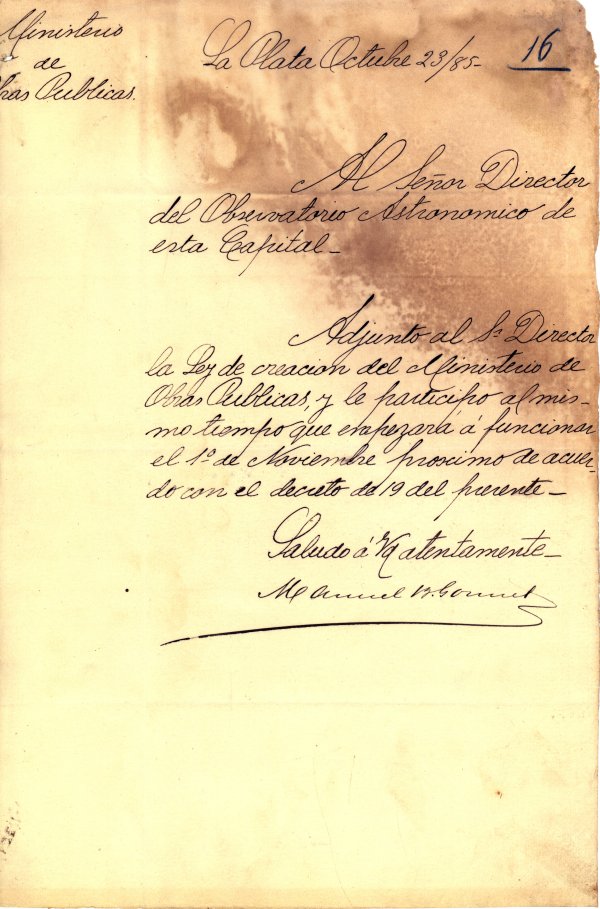 Ministerio
de
Obras Publicas.
La Plata Octubre 23/85-
16
Al Señor Director
del Observatorio Astronomico de
esta Capital_
Adjunto al Sr Director
la Ley de creacion del Ministerio de
Obras Publicas, y le participo al mis-
mo tiempo que empezará á funcionar
el 1º de Noviembre proximo de acuer-
do con el decreto de 19 del presente_
Saludo á Vd atentamente_
Manuel B. Gonnet